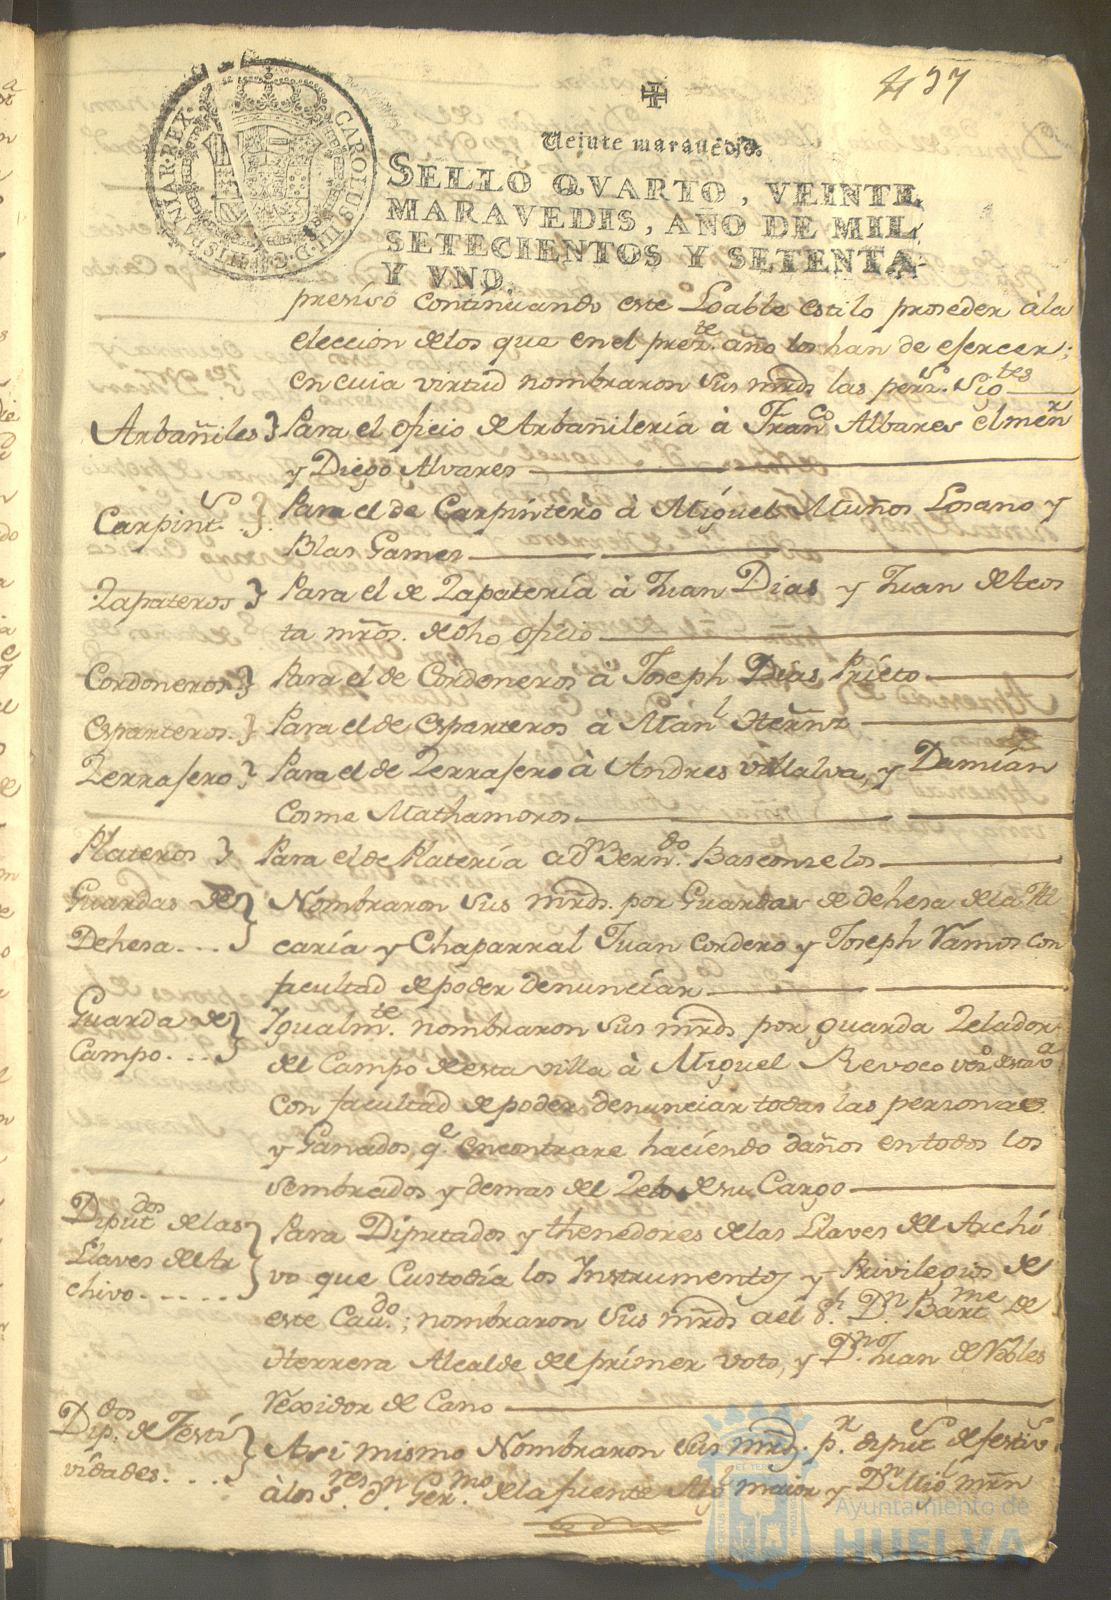 437
HISPANIAR·REX· CAROLUS·III·D·G·
Veinte maravedis.
SELLO QVARTO, VEINTE
MARAVEDIS, AÑO DE MIL
SETECIENTOS Y SETENTA
Y VNO.
presiso continuando este Loable estilo proseder à la
eleccion de los que en el preste. año los han de eserser;
en cuia virtud nombraron sus mrds las pers. Sigtes
Arbañiles } Para el oficio de Arbañileria à Franco Albares el menr
y Diego Alvares
Carpints. } Para el de Carpintero à Miguel Muños Losano y
Blas Gamez
Zapateros } Para el de Zapatería à Juan Dias y Juan de Acos
ta mros. de dho oficio
Cordoneros } Para el de Cordoneros à Joseph Dias Prieto
Esparteros. } Para el de Esparteros à Manl Hernz
Zerrajero } Para el de Zerrajero à Andres Villalva, y Damián
Cosme Mathamoros
Plateros } Para el de Platería a Dn Berndo. Basconselos
Guardas de } Nombraron sus mrds. por Guardas de dehesa de la Al
Dehesa... } caría y Chaparral Juan Cordero y Joseph Ramos con
facultad de poder denunciar
Guarda de } Igualmte. nombraron sus mrds por guarda Zelador
Campo.... } del Campo de esta villa à Miguel Revoco vo. de esta va
con facultad de poder denunciar todas las personas
y Ganados, qe encontrare haciendo daños en todos los
sembrados y demas del Zelo de su Cargo
Diputdos de las } Para Diputados y thenedores de las Llaves del Archi
Llaves del Ar } vo que Custodía los Instrumentos y Privilegios de
chivo...... este Cavdo.; nombraron sus mrds a el Sr. Dn. Bartme de
Herrera Alcalde del primer voto, y Dn Juan de Robles
Rexidor de Cano
Dipdos. de Festi } Asi mismo Nombraron sus mrds. pr. diputs de festivs
vidades.... } à los Sres. Dn. Germo. de la fuente Algl maior y Dn Migl mrn
Ayuntamiento de
HUELVA